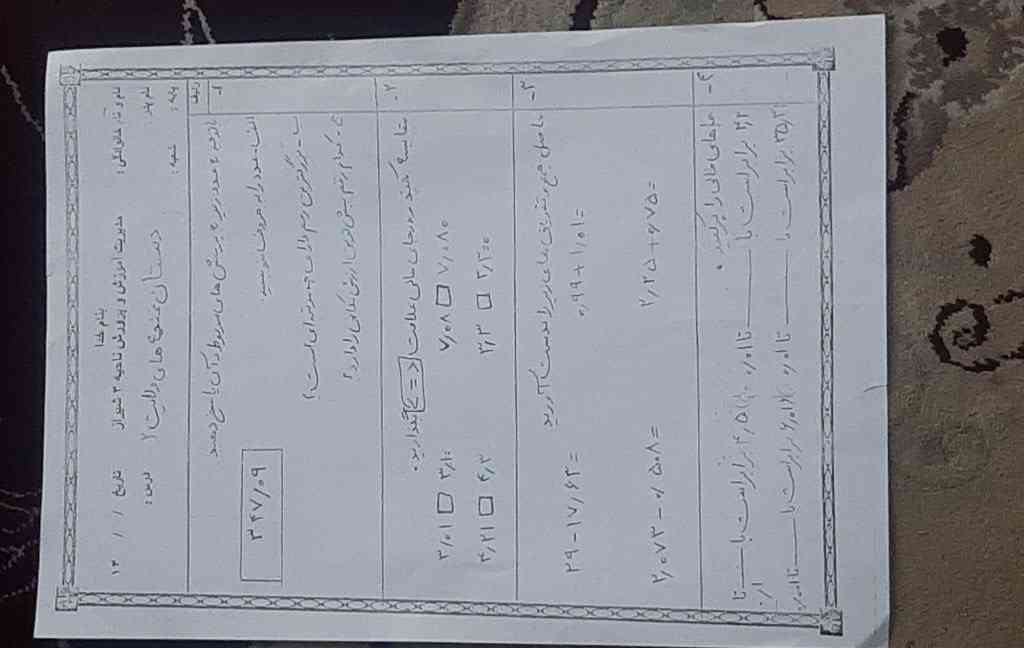 بنام خدا
نام و نام خانوادگی : مدیریت آموزش و پرورش ناحیه ۳ شیراز تاریخ / / ۱۳
نام پدر: دبستان غنچه های ولایت ۲ درس :
پایه : شعبه :
ردیف
۱- با توجه به عدد زیر به پرسش های مربوط به آن پاسخ دهید.
الف- عدد را به حروف بنویسید
۳۴۷/۰۹
ب- بزرگترین رقم دارای چه مرتبه ای است؟
ج- کدام رقم بیش ترین ارزش مکانی را دارد؟
۲- مقایسه کنید و در جای خالی علامت < = > بگذارید.
۷/۰۸ □ ۷/۰۸۰ ۳/۰۱ □ ۳/۱۰
۲/۳ □ ۲/۳۰۰ ۴/۲۱ □ ۴/۲
۳- حاصل جمع و تفریق های زیر را بدست آورید
۰/۹۹ + ۱/۰۱ = ۲۹ - ۱۷/۶۳ =
۲/۲۵ + ۰/۷۵ = ۲/۰۷۳ - ۰/۵۰۸ =
۴- جاهای خالی را پر کنید.
۲/۲ برابر است با ــــ تا ۰/۱ ۴/۵ برابر است با ــــ تا ۰/۱
برابر است با ــــ تا برابر است با ــــ تا ۰/۰۰۱